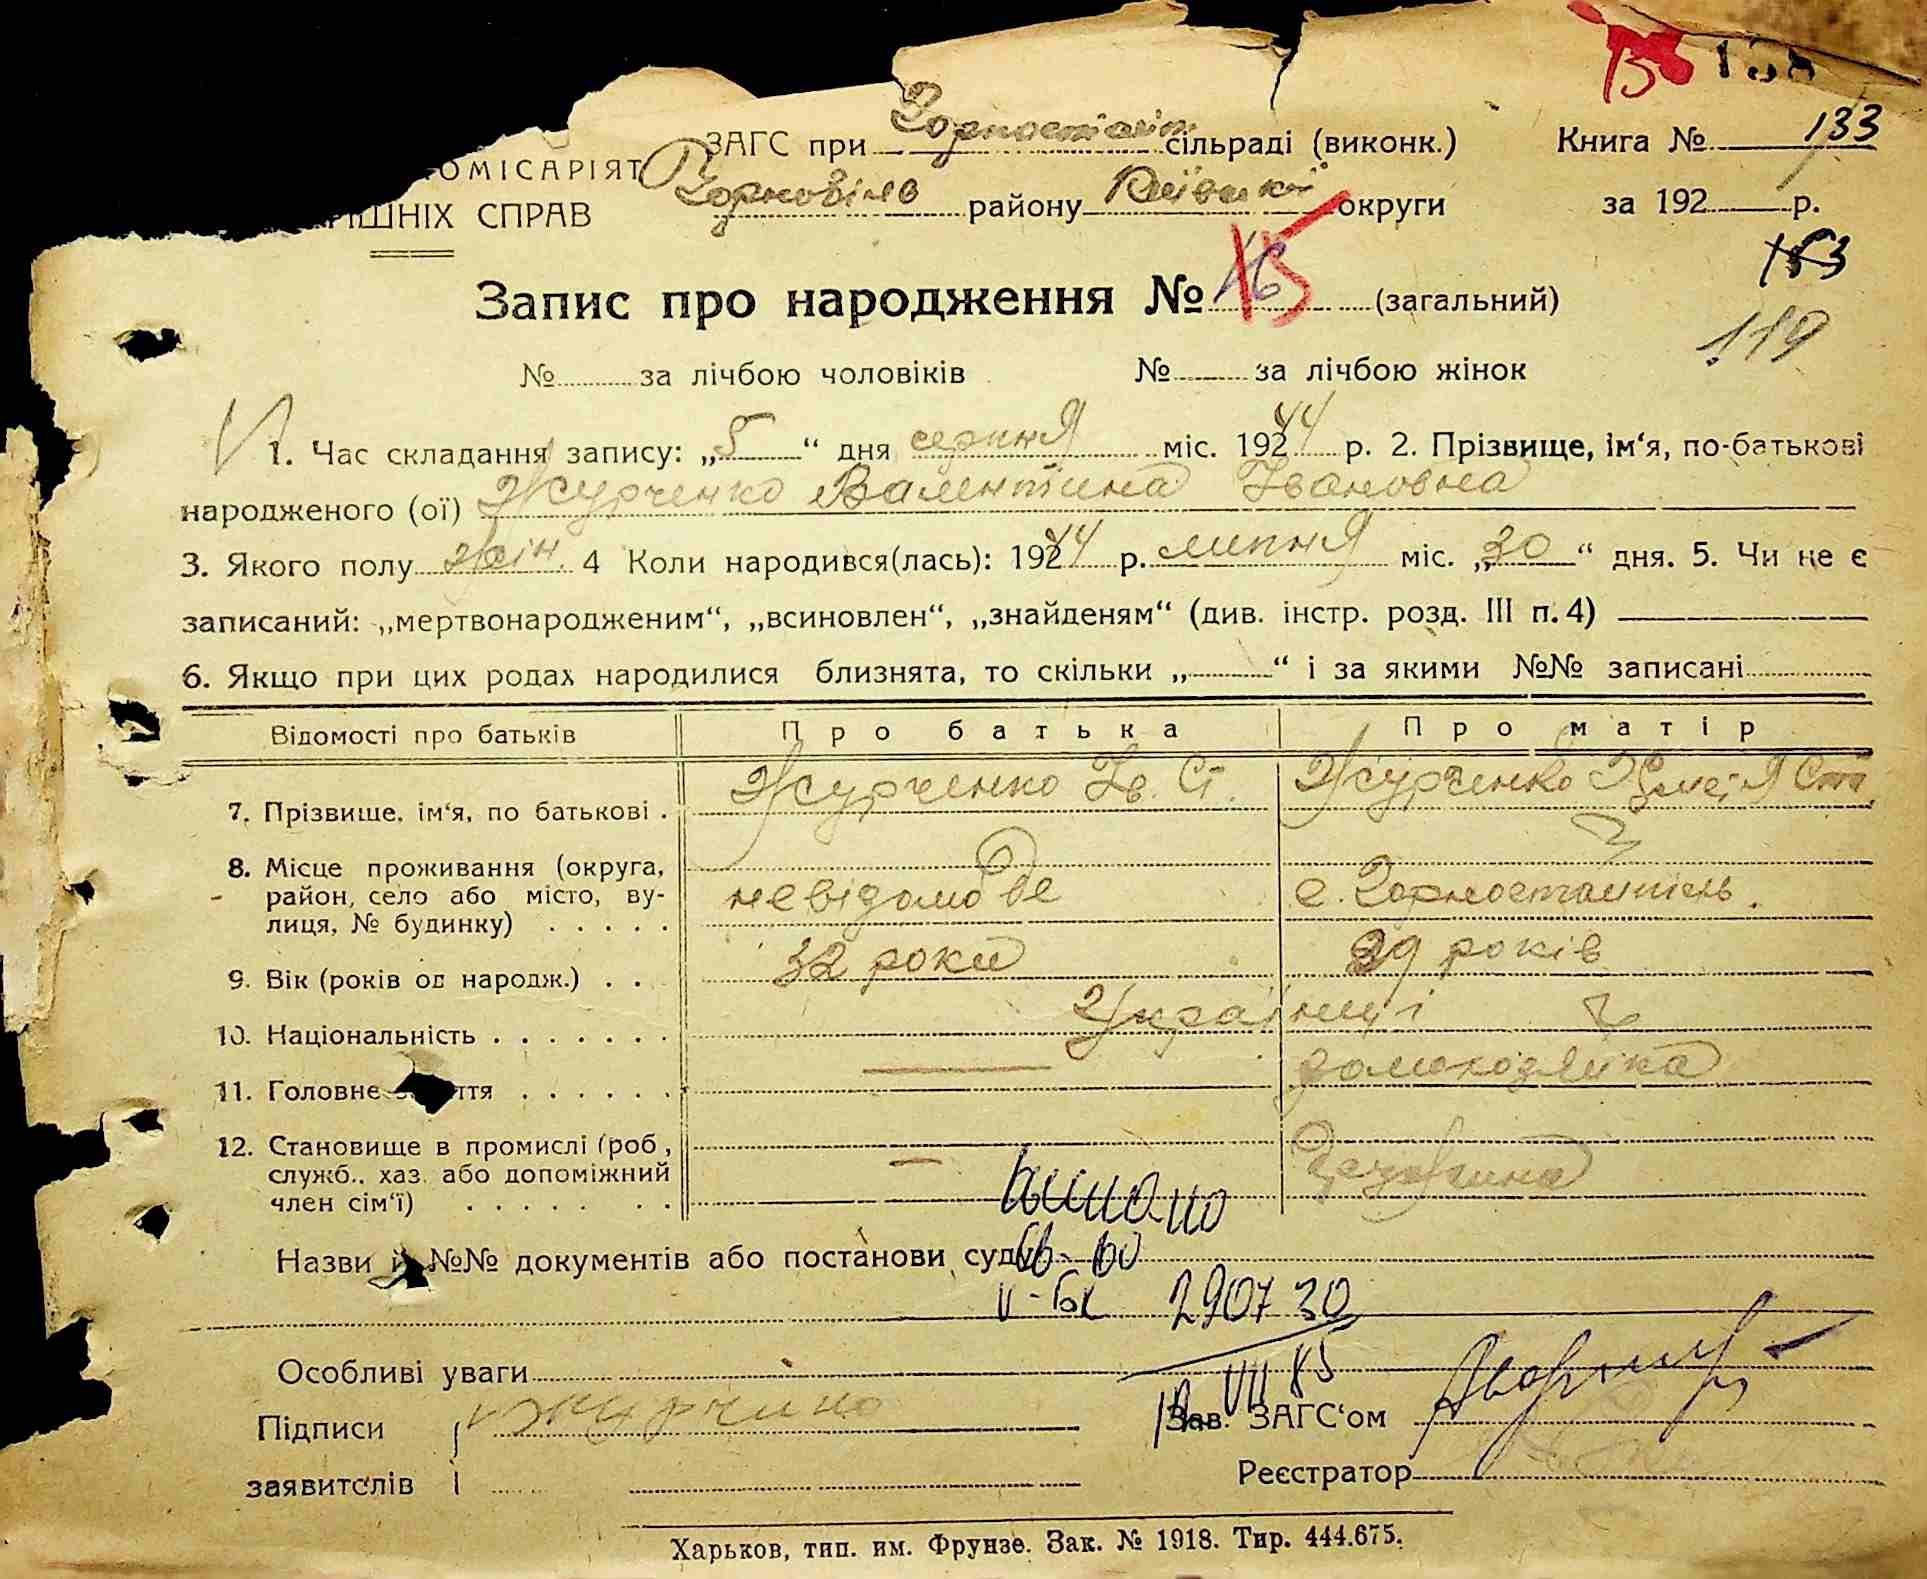 133
ЗАГС при Горностайп сільраді (виконк.) Книга № 133
ОМІСАРІЯТ
Чорнобілв району Київської округи за 192 р.
ІШНІХ СПРАВ
153
Запис про народження № 15 (загальний)
119
№ за лічбою чоловіків № за лічбою жінок
1. Час складання запису: „5“ дня серпня міс. 1944 р. 2. Прізвище, ім‘я, по-батькові
народженого (ої) Журченко Валентина Івановна
3. Якого полу жін. 4 Коли народився(лась): 1944 р. липня міс. „30“ дня. 5. Чи не є
записаний: „мертвонародженим“, „всиновлен“, „знайденям“ (див. інстр. розд. III п. 4)
6. Якщо при цих родах народилися близнята, то скільки „ “ і за якими №№ записані
Відомості про батьків Про батька Про матір
7. Прізвище, ім‘я, по батькові . Журченко Ів. Ст. Журченко
8. Місце проживання (округа,
район, село або місто, ву- невідомо де с. Горностайпіль.
лиця, № будинку) . . . . .
9. Вік (років од народж.) . . 32 роки 29 років
10. Національність . . . . . . . Українці
11. Головне з ття . . . . . . домохозяйка
12. Становище в промислі (роб.,
служб., хаз. або допоміжний
член сім‘ї) . . . . . . .
Назви й №№ документів або постанови суду
290730
Особливі уваги
VII 85
Підписи Журченко Зав. ЗАГС‘ом
заявителів Реєстратор
Харьков, тип. им. Фрунзе. Зак. № 1918. Тир. 444.675.